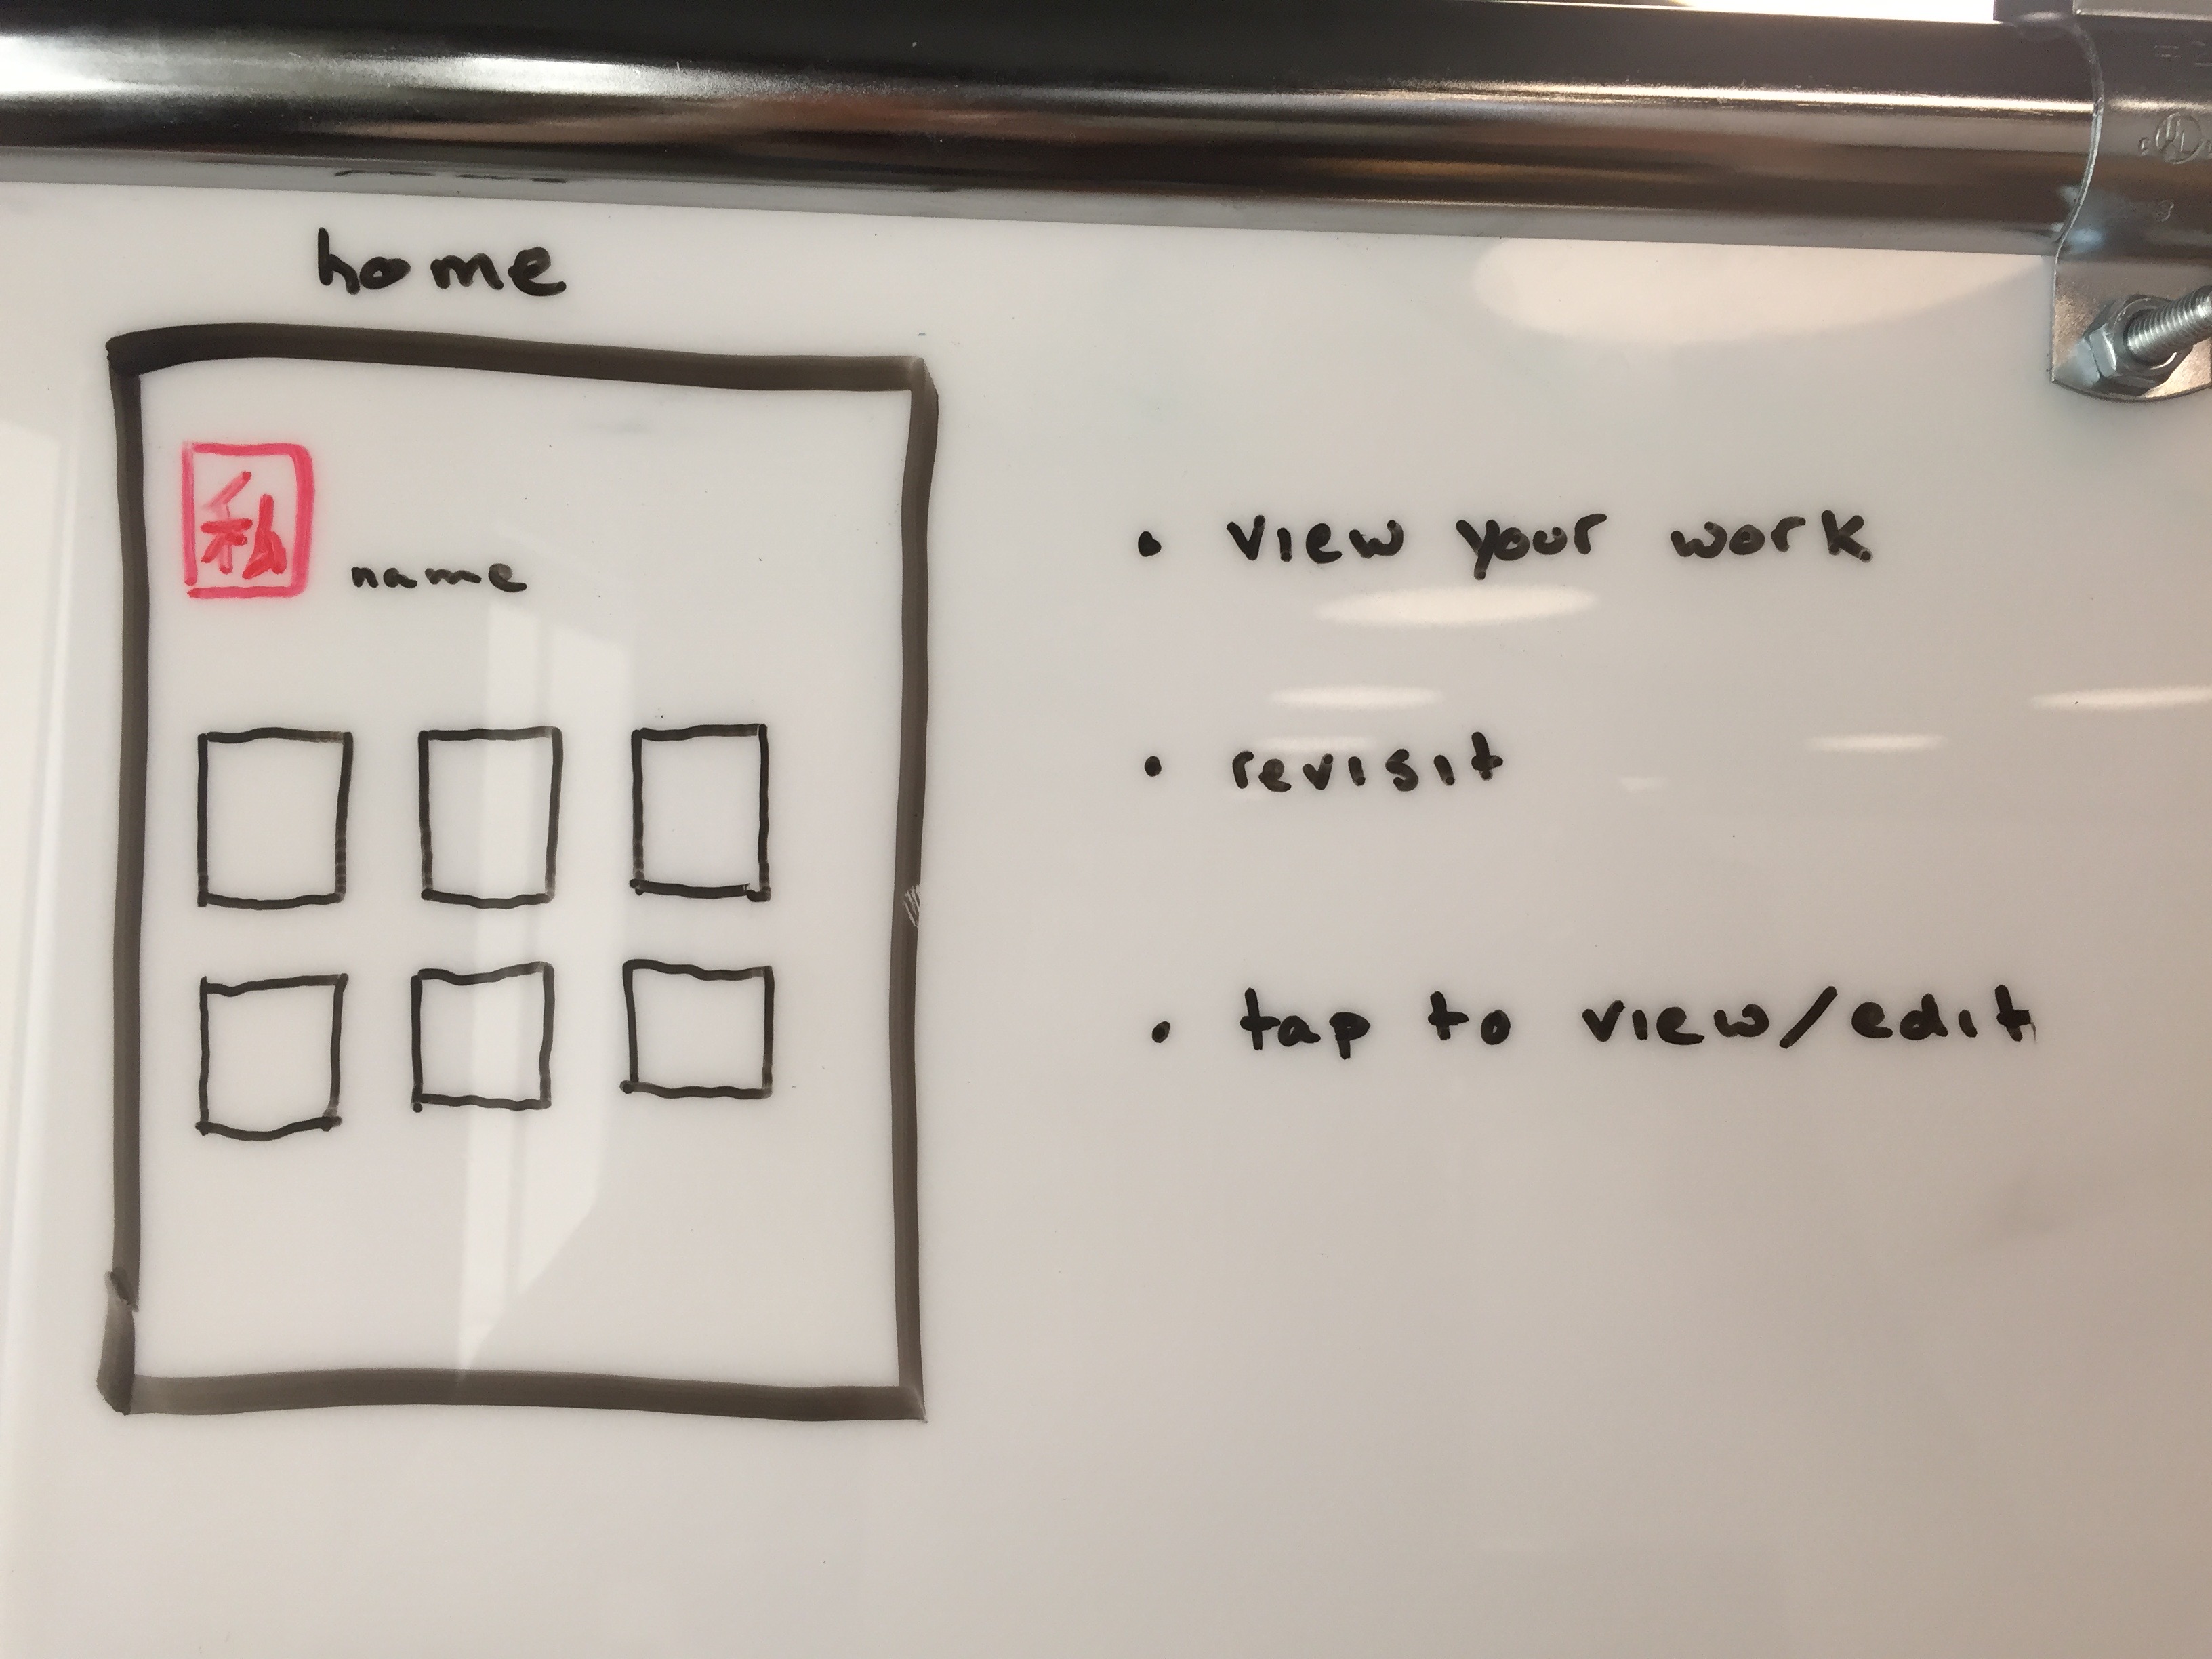 home
私
name
• view your work
• revisit
• tap to view/edit